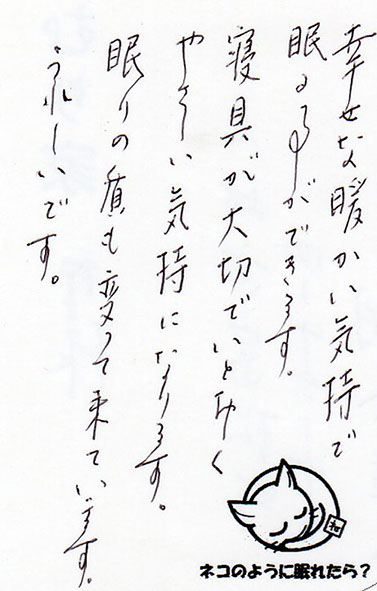 幸せな暖かい気持で
眠る事ができます。
寝具が大切でいとおしく
やさしい気持になります。
眠りの質も変って来ています。
うれしいです。
和
ネコのように眠れたら？